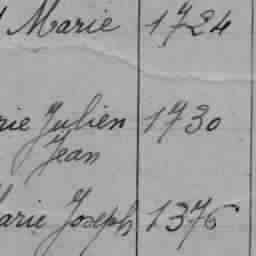 Marie 1724
rie Julien 1730
Jean
arie Joseph 1376